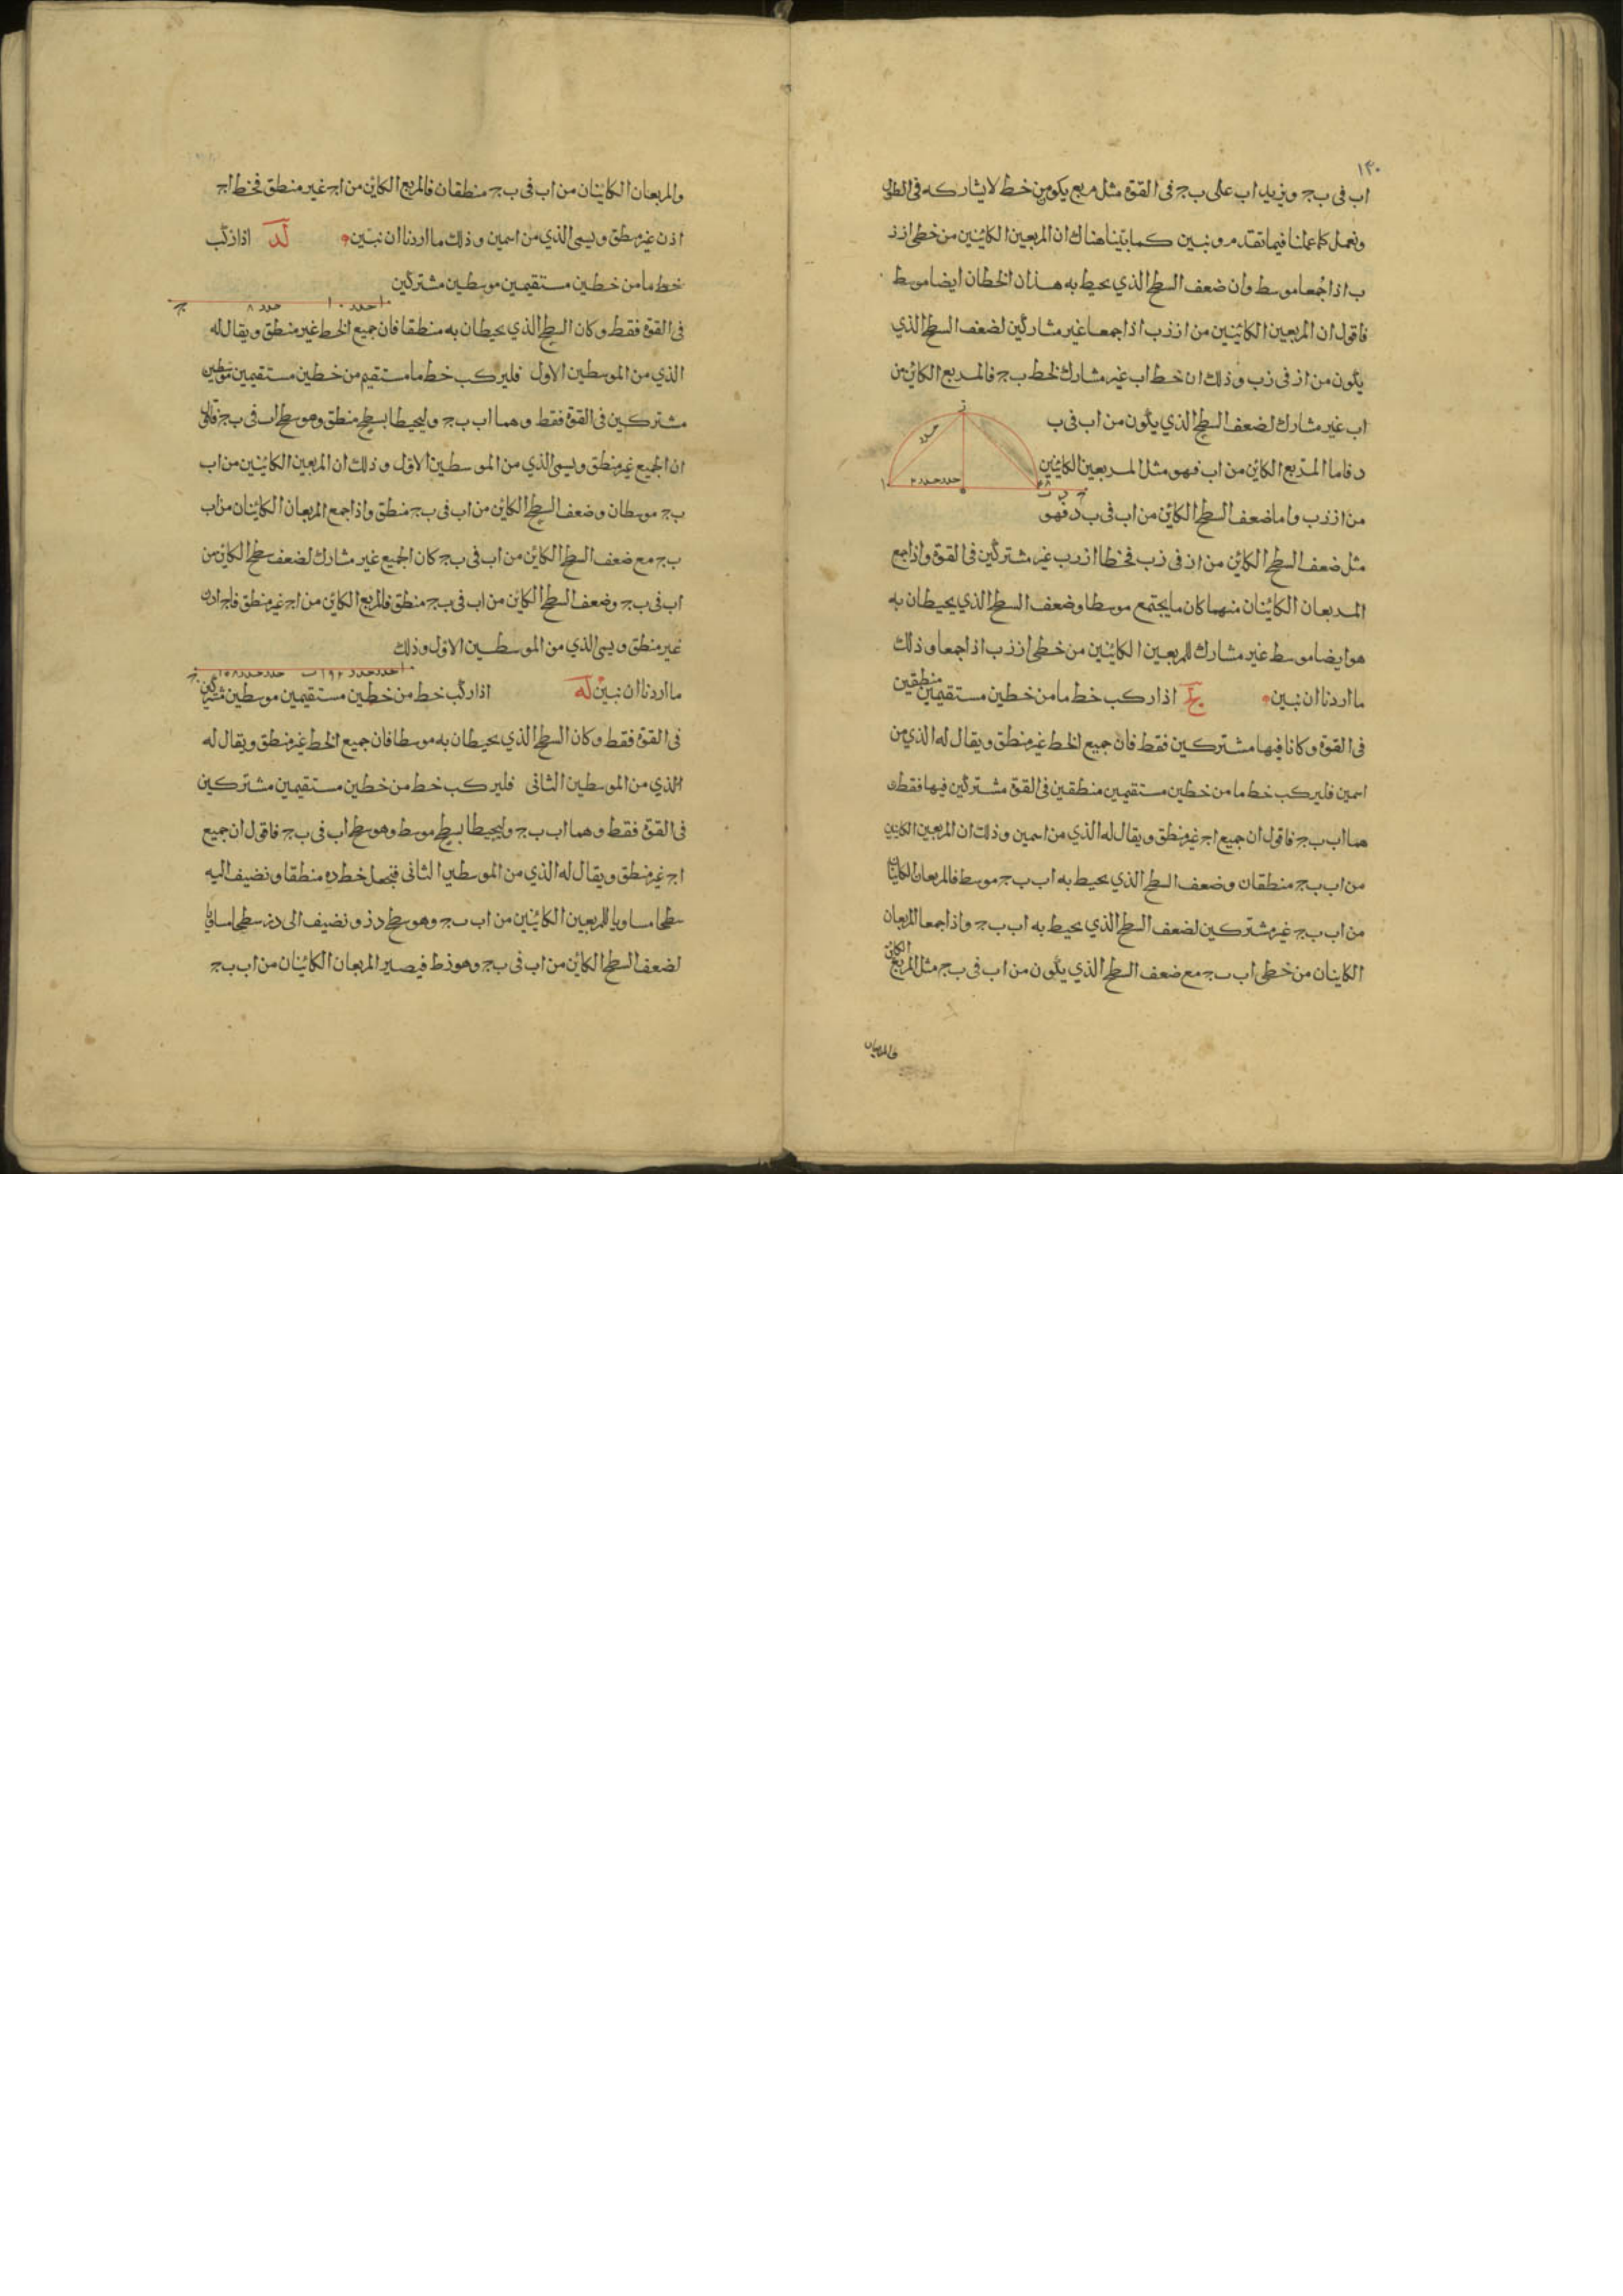 ١٣٠
اب فى ب ج ويزيد اب على ب ج فى القوة مثل مربع يكون من خط لا يشاركه فى الطول
ونعمل كما عملنا فيما تقدم ونبين كما بيّنا هناك ان المربعين الكائنين من خطى از ز
ب اذا جُمعا موسط وان ضعف السطح الذي يحيط به هذان الخطان ايضا موسط
فاقول ان المربعين الكائنين من از زب اذا جمعا غير مشاركين لضعف السطح الذي
يكون من از فى زب وذلك ان خط اب غير مشارك لخط ب ج فالمربع الكائن من
اب غير مشارك لضعف السطح الذي يكون من اب فى ب
د فاما المربع الكائن من اب فهو مثل المربعين الكائنين
من از زب واما ضعف السطح الكائن من اب فى ب د فهو
مثل ضعف السطح الكائن من از فى زب فخطا از زب غير مشتركين فى القوة واذا جمع
المربعان الكائنان منهما كان ما يجتمع موسطا وضعف السطح الذي يحيطان به
هو ايضا موسط غير مشارك للمربعين الكائنين من خطى از زب اذا جمعا وذلك
ما اردنا ان نبين لج اذا ركب خط ما من خطين مستقيمين منطقين
فى القوة وكانا فيها مشتركين فقط فان جميع الخط غير منطق ويقال له الذي من
اسمين فليركب خط ما من خطين مستقيمين منطقين فى القوة مشتركين فيها فقط و
هما اب ب ج فاقول ان جميع ا ج غير منطق ويقال له الذي من اسمين وذلك ان المربعين الكائنين
من اب ب ج منطقان وضعف السطح الذي يحيط به اب ب ج موسط فالمربعان الكائنان
من اب ب ج غير مشتركين لضعف السطح الذي يحيط به اب ب ج واذا جمعا المربعان
الكاينان من خطى اب ب ج مع ضعف السطح الذي يكون من اب فى ب ج مثل المربع الكائن
فالمربعان
والمربعان الكائنان من اب فى ب ج منطقان فالمربع الكائن من ا ج غير منطق فخط ا ج
اذن غير منطق ويسمى الذي من اسمين وذلك ما اردنا ان نبيّن لد اذا ركّب
خط ما من خطين مستقيمين موسطين مشتركين
فى القوة فقط وكان السطح الذي يحيطان به منطقا فان جميع الخط غير منطق ويقال له
الذي من الموسطين الاول فليركب خط ما مستقيم من خطين مستقيمين موسطين
مشتركين فى القوة فقط وهما اب ب ج وليحيطا بسطح منطق وهو سطح اب فى ب ج فاقول
ان الجميع غير منطق ويسمى الذي من الموسطين الاول وذلك ان المربعين الكائنين من اب
ب ج موسطان وضعف السطح الكائن من اب فى ب ج منطق واذا جمع المربعان الكائنان من اب
ب ج مع ضعف السطح الكائن من اب فى ب ج كان الجميع غير مشارك لضعف سطح الكائن من
اب فى ب ج وضعف السطح الكائن من اب فى ب ج منطق فالمربع الكائن من ا ج غير منطق فا ج اذن
غير منطق ويسمى الذي من الموسطين الاول وذلك
ما اردنا ان نبيّن له اذا ركّب خط من خطين مستقيمين موسطين مشتركين
فى القوة فقط وكان السطح الذي يحيطان به موسطا فان جميع الخط غير منطق ويقال له
الذي من الموسطين الثانى فليركب خط من خطين مستقيمين مشتركين
فى القوة فقط وهما اب ب ج وليحيطا بسطح موسط وهو سطح اب فى ب ج فاقول ان جميع
ا ج غير منطق ويقال له الذي من الموسطين الثانى فنجعل خط ده منطقا ونضيف اليه
سطحا مساويا للمربعين الكائنين من اب ب ج وهو سطح د ز ونضيف الى سطحا مساويا
لضعف السطح الكائن من اب فى ب ج وهو زط فيصير المربعان الكائنان من اب ب ج